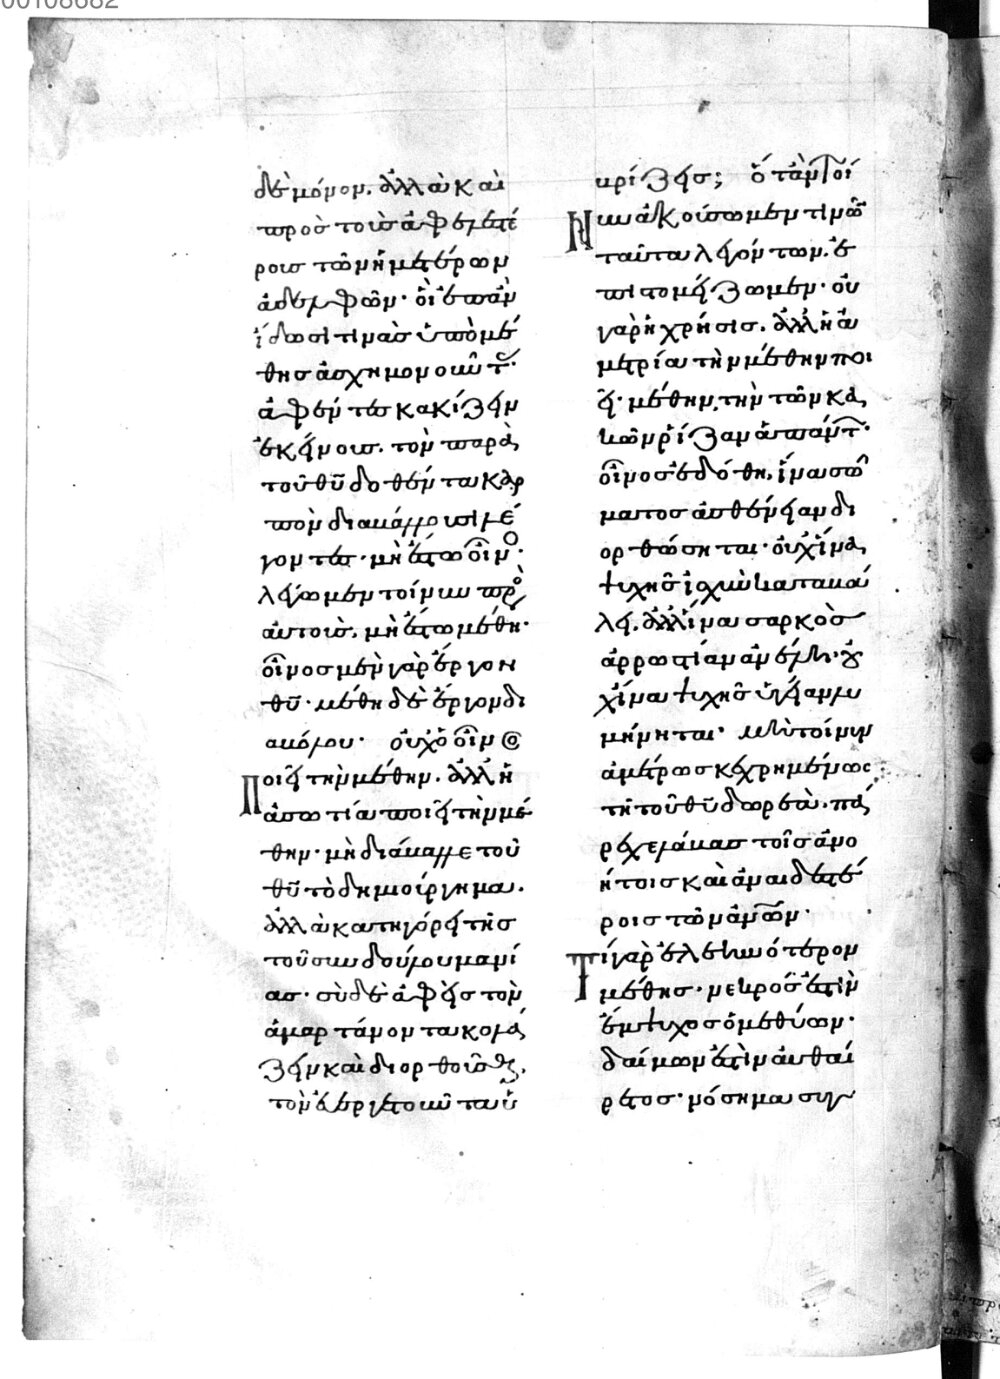 00108682
δὲ μόνον. ἀλλὰ καὶ
πρὸς τοὺς ἀφελεστέ
ρους τῶν ἡμετέρων
ἀδελφῶν· οἳ ἐπὰν
ἴδωσί τινας ὑπὸ μέ
θης ἀσχημονοῦντ
ἀφέντες κακίζειν
ἐκείνους. τὸν παρὰ
τοῦ θῦ δοθέντα καρ
πὸν διαβάλλουσι λέ
γοντες· μὴ ἔστω οἶνος·
λέγωμεν τοίνυν πρὸς
αὐτοὺς. μὴ ἔστω μέθη·
οἶνος μὲν γὰρ ἔργον
θῦ· μέθη δὲ ἔργον δι
αβόλου· οὐχ ὁ οἶνος
Ποιεῖ τὴν μέθην. ἀλλ' ἡ
ἀσωτία ποιεῖ τὴν μέ
θην· μὴ διάβαλλε τοῦ
θῦ τὸ δημιούργημα.
ἀλλὰ κατηγόρει τῆς
τοῦ συνδούλου μανί
ας· σὺ δὲ ἀφεὶς τὸν
ἁμαρτάνοντα κολά
ζειν καὶ διορθοῦσθαι,
τὸν εὐεργέτην σου ὑ
βρίζεις; ὅταν τοί
Νυν ἀκούσωμέν τινων
ταῦτα λεγόντων. ἐ
πιστομίζωμεν· οὐ
γὰρ ἡ χρῆσις. ἀλλ' ἡ ἀ
μετρία τὴν μέθην ποι
εῖ· μέθην, τὴν τῶν κα
κῶν ῥίζαν ἁπάντ·
οἶνος ἐδόθη, ἵνα σώ
ματος ἀσθένειαν δι
ορθώσηται· οὐχ ἵνα
ψυχῆς ἰσχὺν καταβά
λῃ. ἀλλ' ἵνα σαρκὸς
ἀρρωστίαν ἀνέλῃ· οὐ
χ ἵνα ψυχῆς ὑγείαν λυ
μήνηται· μὴ τοίνυν
ἀμέτρως κεχρημένος
τῇ τοῦ θῦ δωρεᾷ. πα
ρεχε λαβὰς τοῖς ἀνο
ήτοις καὶ ἀναιδεστέ
ροις τῶν ἀνων·
Τί γὰρ ἐλεεινότερον
μέθης· νεκρός ἐστιν
ἔμψυχος ὁ μεθύων·
δαίμων ἐστὶν αὐθαί
ρετος· νόσημα συγ